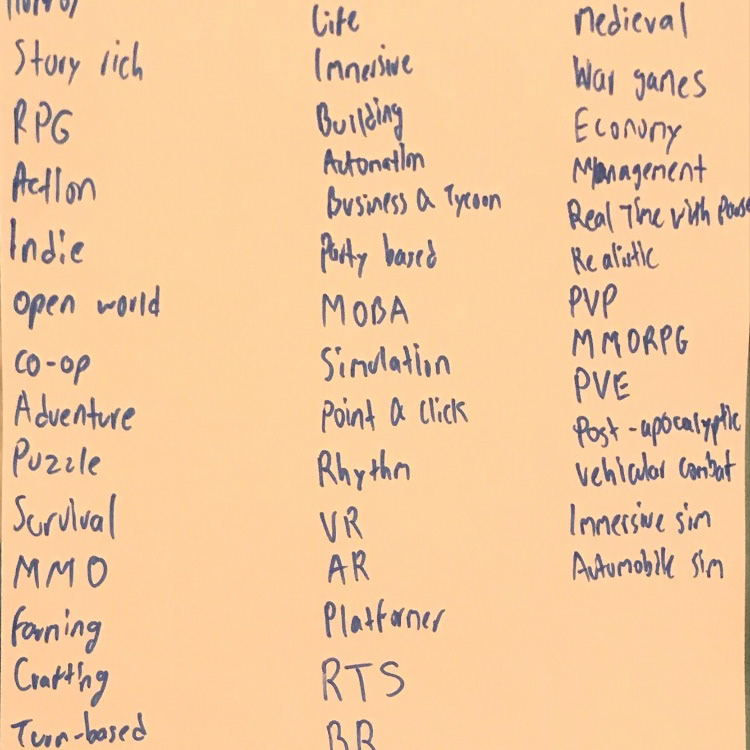 Horror
Story rich
RPG
Action
Indie
open world
co-op
Adventure
Puzzle
Survival
MMO
Farming
Crafting
Turn-based
Life
Immersive
Building
Automation
Business & Tycoon
Party based
MOBA
Simulation
Point & click
Rhythm
VR
AR
Platformer
RTS
BR
Medieval
War games
Economy
Management
Real Time with Pause
Realistic
PVP
MMORPG
PVE
Post-apocalyptic
Vehicular combat
Immersive sim
Automobile sim